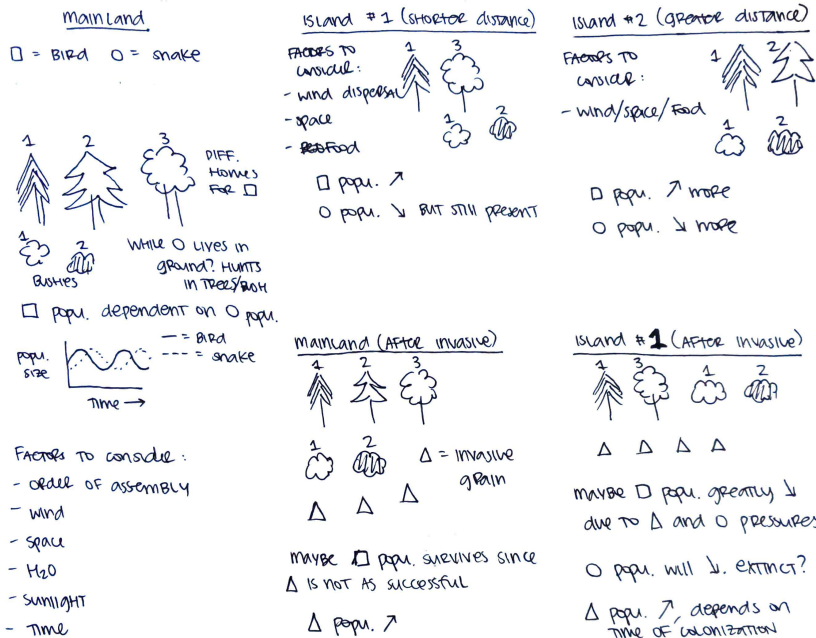 mainland
□ = BIRD O = snake
1 2 3
DIFF. Homes FOR □
1 2
BUSHIES
WHILE O LIVES IN
ground? HUNTS
IN TREES/BUSH
□ popu. dependent on O popu.
popu. size
— = BIRD
--- = snake
Time →
FACTORS TO consider:
- ORDER OF ASSEMBLY
- wind
- space
- H2O
- sunlight
- Time
Island #1 (SHORTER distance)
FACTORS TO
consider:
- wind dispersal
- space
- Food
1 3
1 2
□ popu. ↗
O popu. ↘ BUT STILL PRESENT
mainland (AFTER invasive)
1 2 3
1 2
Δ = invasive
grain
maybe □ popu. survives since
Δ is not as successful
Δ popu. ↗
Island #2 (greater distance)
FACTORS TO
consider:
- wind/space/Food
1 2
1 2
□ popu. ↗ more
O popu. ↘ more
Island #1 (AFTER invasive)
1 3 1 2
maybe □ popu. greatly ↓
due to Δ and O pressures
O popu. will ↓. extinct?
Δ popu. ↗, depends on
TIME OF COLONIZATION